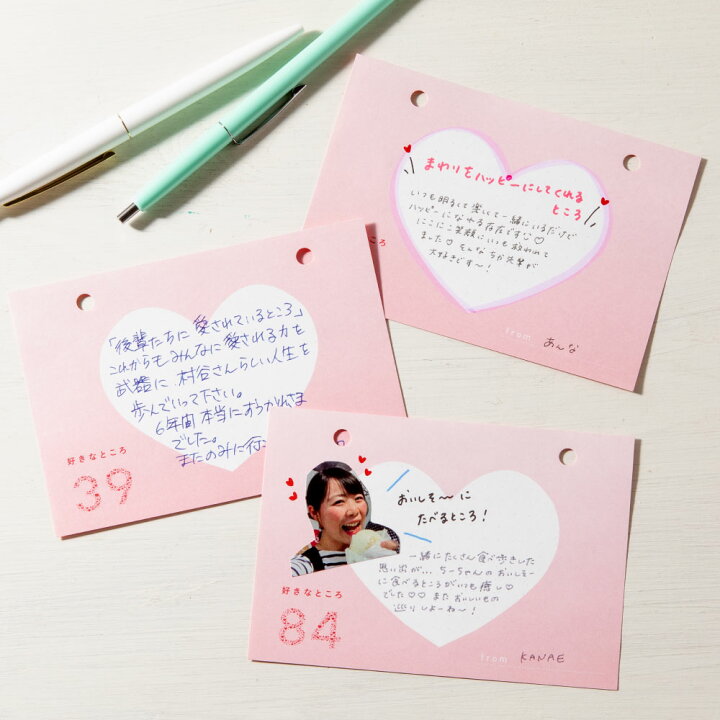 まわりをハッピーにしてくれる
ところ
いつも明るくて楽しくて一緒にいるだけで
ハッピーになれる存在です♡
にこにこ笑顔にいつも救われて
ました♡そんなちか先輩が
大好きです〜!
好きなところ
from あんな
「後輩たちに愛されているところ」
これからもみんなに愛される力を
武器に村谷さんらしい人生を
歩んでいって下さい。
6年間本当におつかれさま
でした。
またのみに行
好きなところ
39
おいしそ〜に
たべるところ!
一緒にたくさん食べ歩きした
思い出が...ちーちゃんのおいしそー
に食べるところがいつも癒し♡
でした♡♡またおいしいもの
巡りしよーね〜!
好きなところ
84
from KANAE